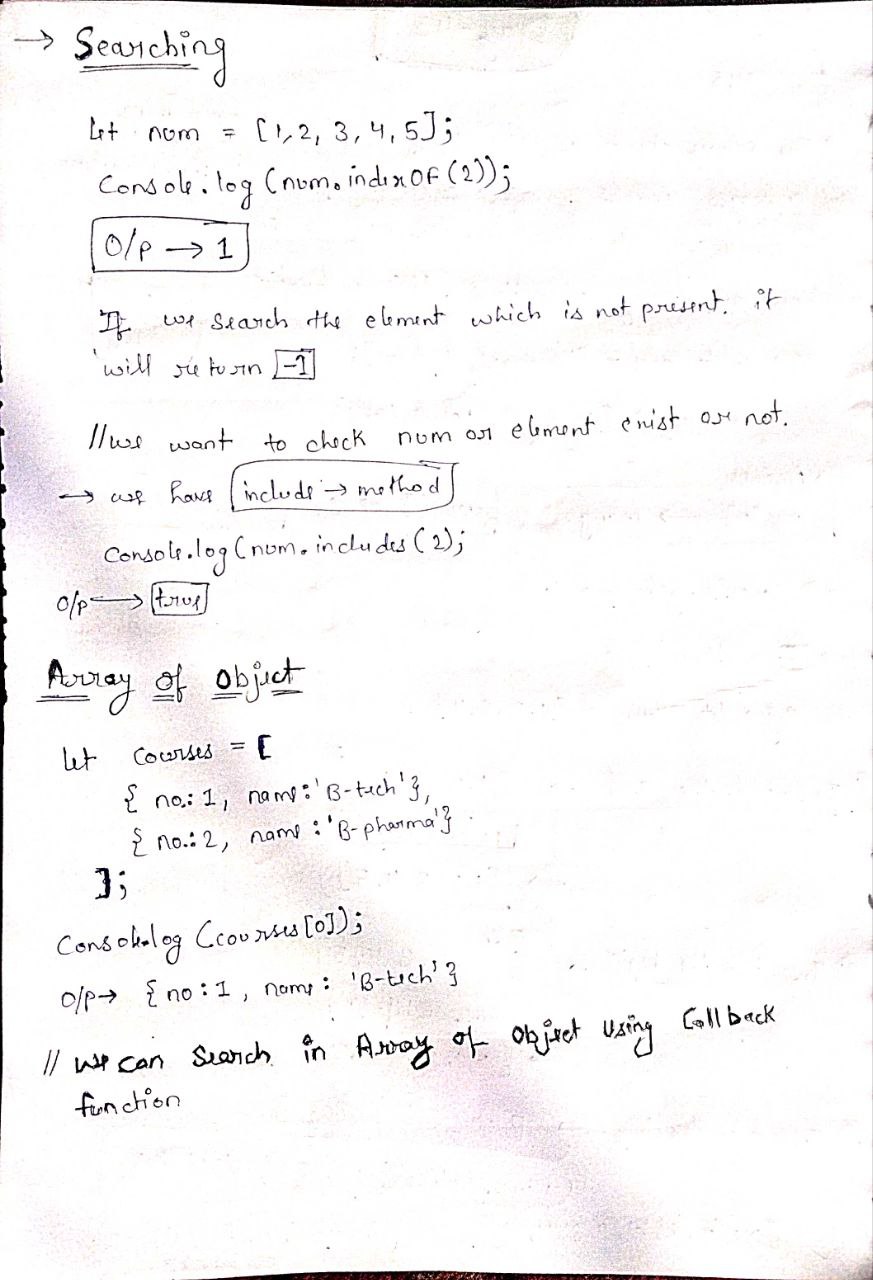 → Searching
let num = [1, 2, 3, 4, 5];
Console.log (num.indexOf (2));
O/p → 1
If we search the element which is not present. it
will return -1
// we want to check num or element exist or not.
→ we have include → method
Console.log (num.includes (2);
O/p → true
Array of Object
let courses = [
{ no.: 1, name: 'B-tech'},
{ no.: 2, name : 'B-pharma'}
];
Console.log (courses[0]);
O/p → { no : 1, name : 'B-tech' }
// we can Search in Array of Object Using Callback
function